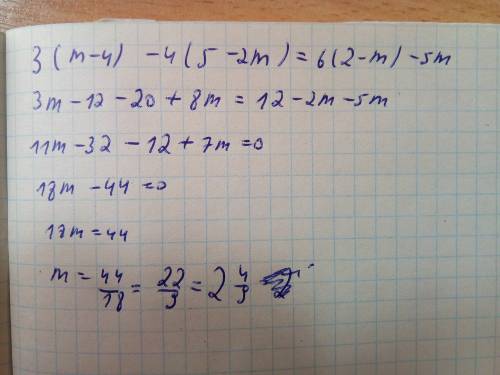 3(m-4) -4(5-2m)=6(2-m)-5m
3m-12-20+8m=12-2m-5m
11m-32-12+7m=0
18m-44=0
18m=44
m=44/18=22/9=2 4/9